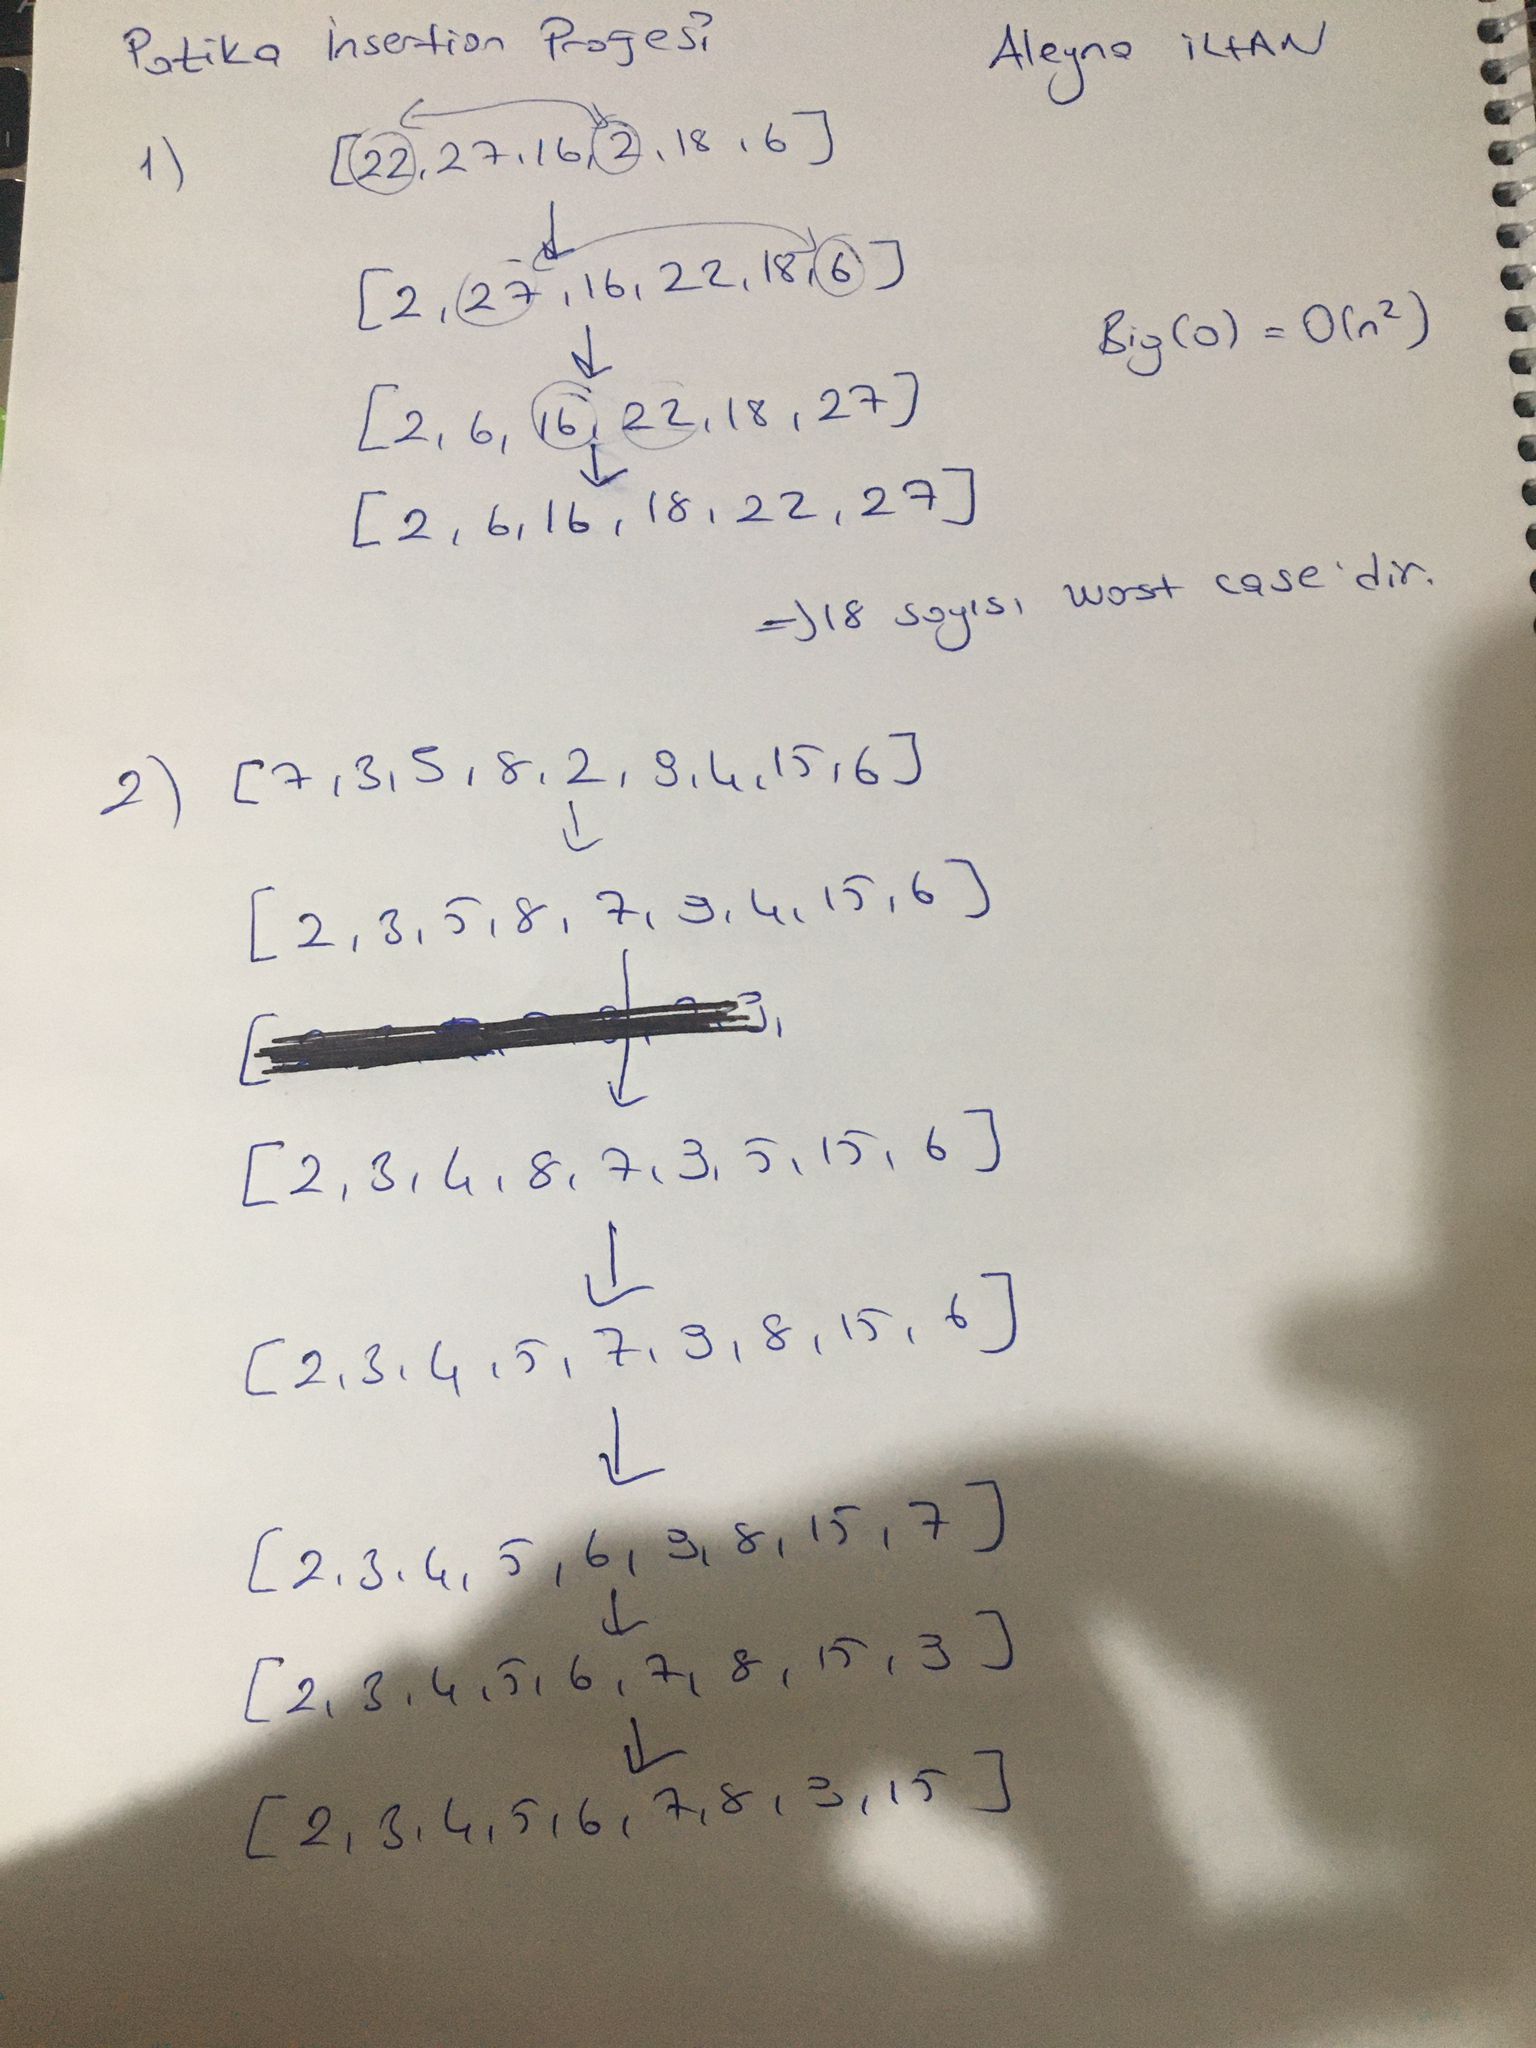 Patika insertion Projesi Aleyna iLHAN
1) [22, 27, 16, 2, 18, 6]
[2, 27, 16, 22, 18, 6]
Big(O) = O(n²)
[2, 6, 16, 22, 18, 27]
[2, 6, 16, 18, 22, 27]
=> 18 sayısı worst case'dir.
2) [7, 3, 5, 8, 2, 9, 4, 15, 6]
[2, 3, 5, 8, 7, 9, 4, 15, 6]
[2, 3, 4, 8, 7, 9, 5, 15, 6]
[2, 3, 4, 5, 7, 9, 8, 15, 6]
[2, 3, 4, 5, 6, 9, 8, 15, 7]
[2, 3, 4, 5, 6, 7, 8, 15, 9]
[2, 3, 4, 5, 6, 7, 8, 9, 15]